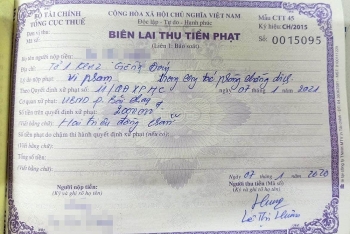 BỘ TÀI CHÍNH
TỔNG CỤC THUẾ
CỘNG HÒA XÃ HỘI CHỦ NGHĨA VIỆT NAM
Độc lập - Tự do - Hạnh phúc
Mẫu CTT 45
Ký hiệu CH/2015
BIÊN LAI THU TIỀN PHẠT
(Liên 1: Báo soát)
Số: 0015095
Tên người nộp tiền:
Địa chỉ:
Lý do nộp phạt: Vi phạm trong công tác phòng chống dịch
Theo Quyết định xử phạt số: 11/QĐXPHC ngày 07 / 1 / 2021
Cơ quan xử phạt: UBND p.
Số tiền: 2000000đ
(Viết bằng chữ) Hai triệu đồng chẵn
Số tiền phạt do chậm thi hành quyết định xử phạt (nếu có):
(Viết bằng chữ)
Tổng số tiền:
(Viết bằng chữ)
Ngày 07 / 1 / 2020
Người nộp tiền:
(Ký và ghi rõ họ, tên)
Người thu tiền (Mã số)
(Ký và ghi rõ họ, tên)
Lê Thị